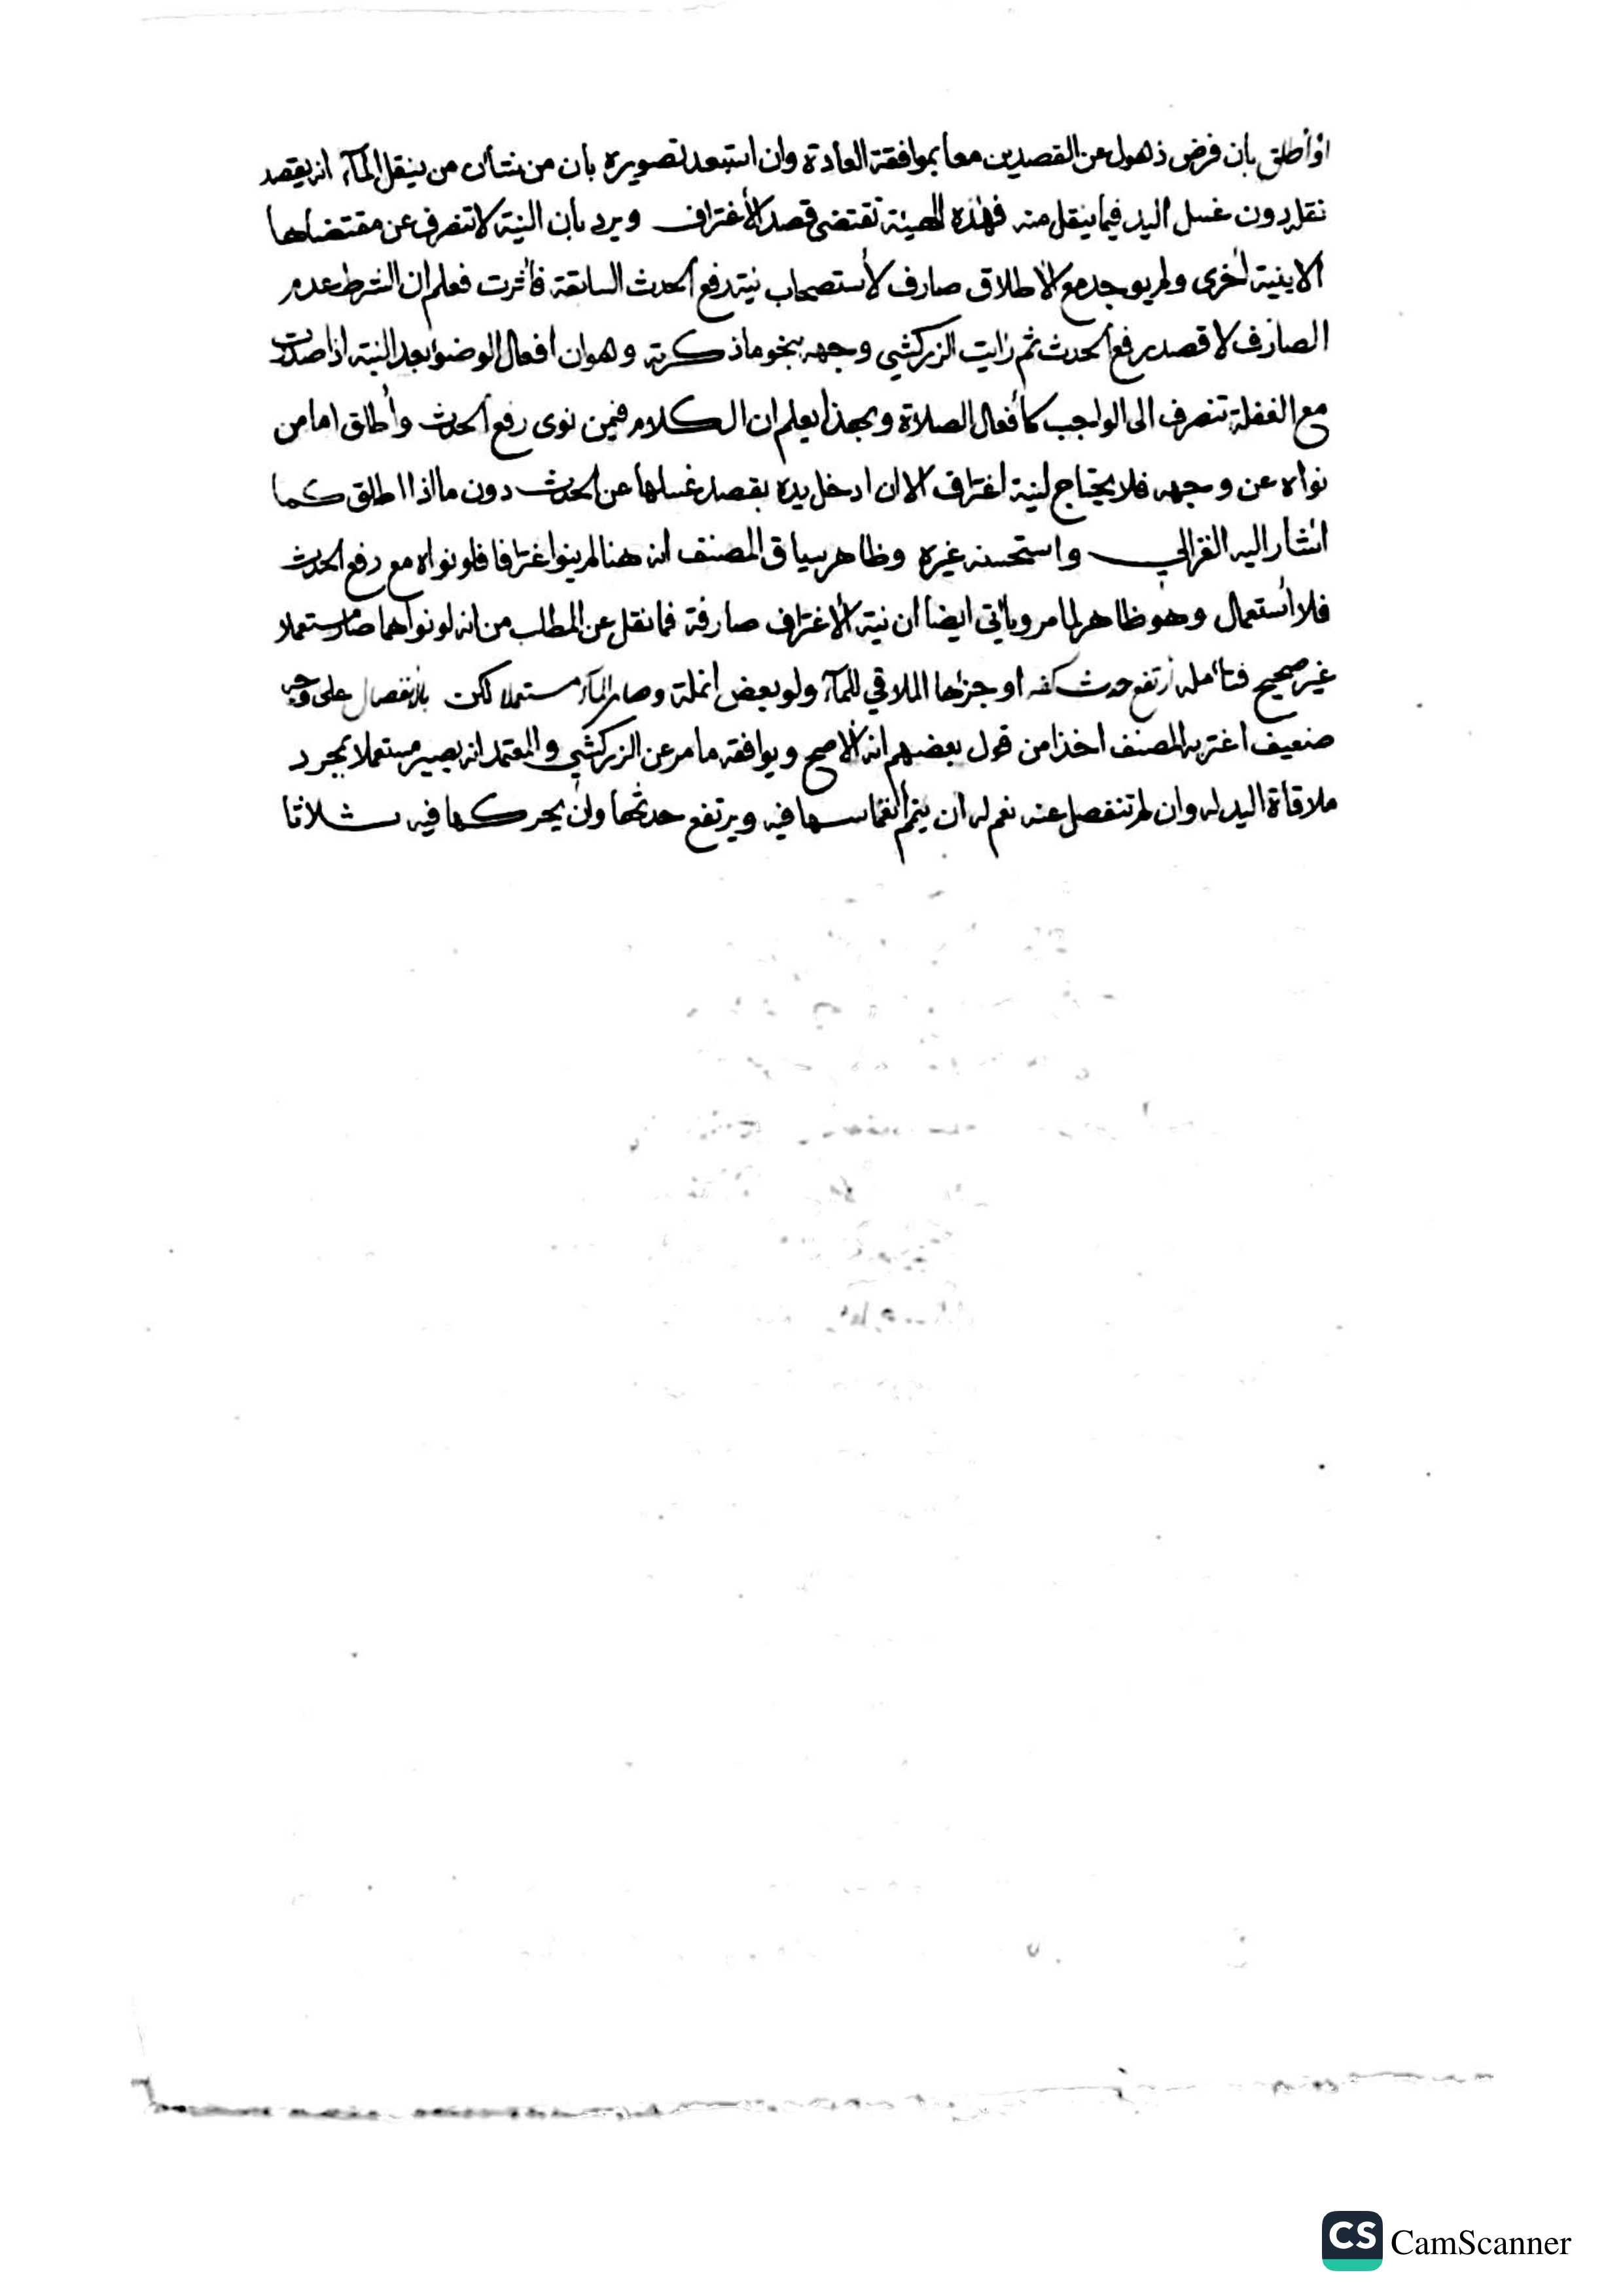 او أطلق بان فرض ذهول عن القصدين معا بموافقة العادة وان استبعد تصويره بان من شأن من ينقل المآء انه يقصد
نقله دون غسل اليد فيما ينقل منه فهذه الهيئة تقتضى قصد الأغتراف ويرد بأن النية لا تنصرف عن مقتضاها
الا بنية أخرى ولم يوجد مع الأطلاق صارف لأستصحاب نية رفع الحدث السابقة فأثرت فعلم ان الشرط عدم
الصارف لا قصد رفع الحدث ثم رايت الزركشي وجهه بنحو ما ذكرته وهو ان افعال الوضوء بعد النية اذا صدرت
مع الغفلة تنصرف الى الواجب كأفعال الصلاة وبهذا يعلم ان الكلام فيمن نوى رفع الحدث وأطلق اما من
نواه عن وجهه فلا يحتاج لنية اغتراف الا ان ادخل يده بقصد غسلها عن الحدث دون ما اذا اطلق كما
اشار اليه الغزالي واستحسنه غيره وظاهر سياق المصنف انه هنا لم ينو اغترافا فلو نواه مع رفع الحدث
فلا أستعمال وهو ظاهر لما مر ويأتي ايضا ان نية الأغتراف صارفة فما نقل عن المطلب من انه لو نواهما صار مستعملا
غير صحيح فتأمله ارتفع حدث كفه او جزئها الملاقي للمآء ولو بعض انملة وصار المآء مستعملا لكن بالانفصال على وجه
ضعيف اغتر به المصنف اخذا من قول بعضهم انه الأصح ويوافقه ما مر عن الزركشي والمعتمد انه يصير مستعملا بمجرد
ملاقاة اليد له وان لم تنفصل عنه نعم له ان يتم أنغماسها فيه ويرتفع حدثها وان يحركها فيه ثلاثا
CS CamScanner